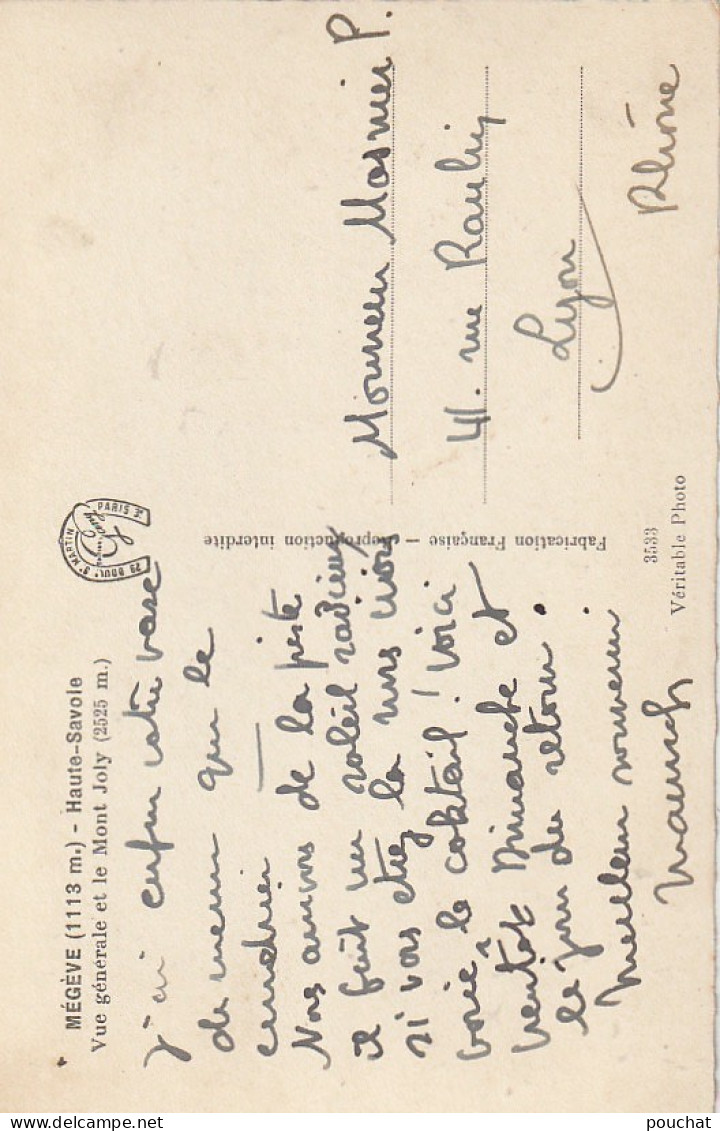 MÉGÈVE (1113 m.) - Haute-Savoie
Vue générale et le Mont Joly (2525 m.)
J'ai enfin votre vase
de même que le
cendrier
Nous arrivons de la piste
il fait un soleil radieux
si vous étiez là nous irions
boire le coktail! Voici
bientôt Dimanche et
le jour du retour.
Meilleur souvenir
29 BOUL. St MARTIN
PARIS 3e
Fabrication Française - Reproduction interdite
Monsieur Mosnier P.
41. rue Raulin
Lyon
Rhône
3533
Véritable Photo
delcampe.net
pouchat